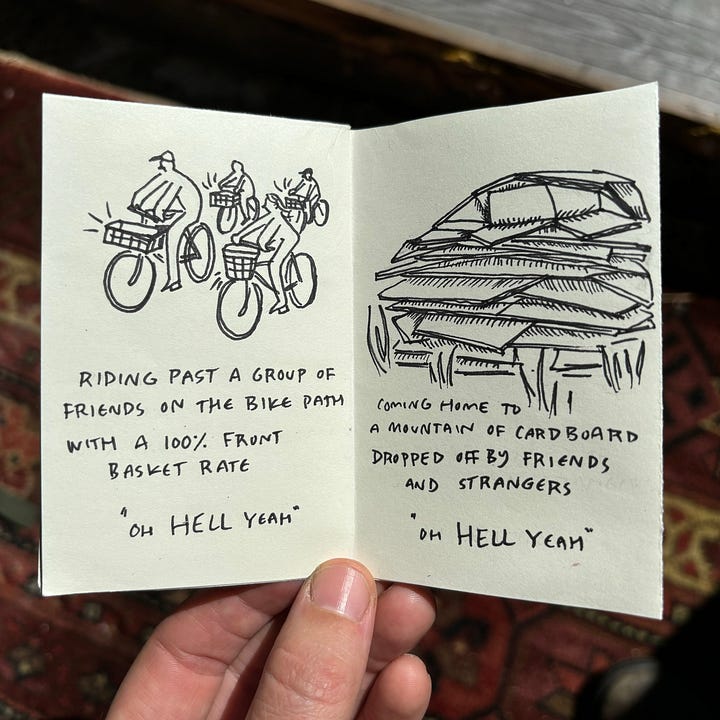 RIDING PAST A GROUP OF
FRIENDS ON THE BIKE PATH
WITH A 100% FRONT
BASKET RATE
"OH HELL YEAH"
COMING HOME TO
A MOUNTAIN OF CARDBOARD
DROPPED OFF BY FRIENDS
AND STRANGERS
"OH HELL YEAH"